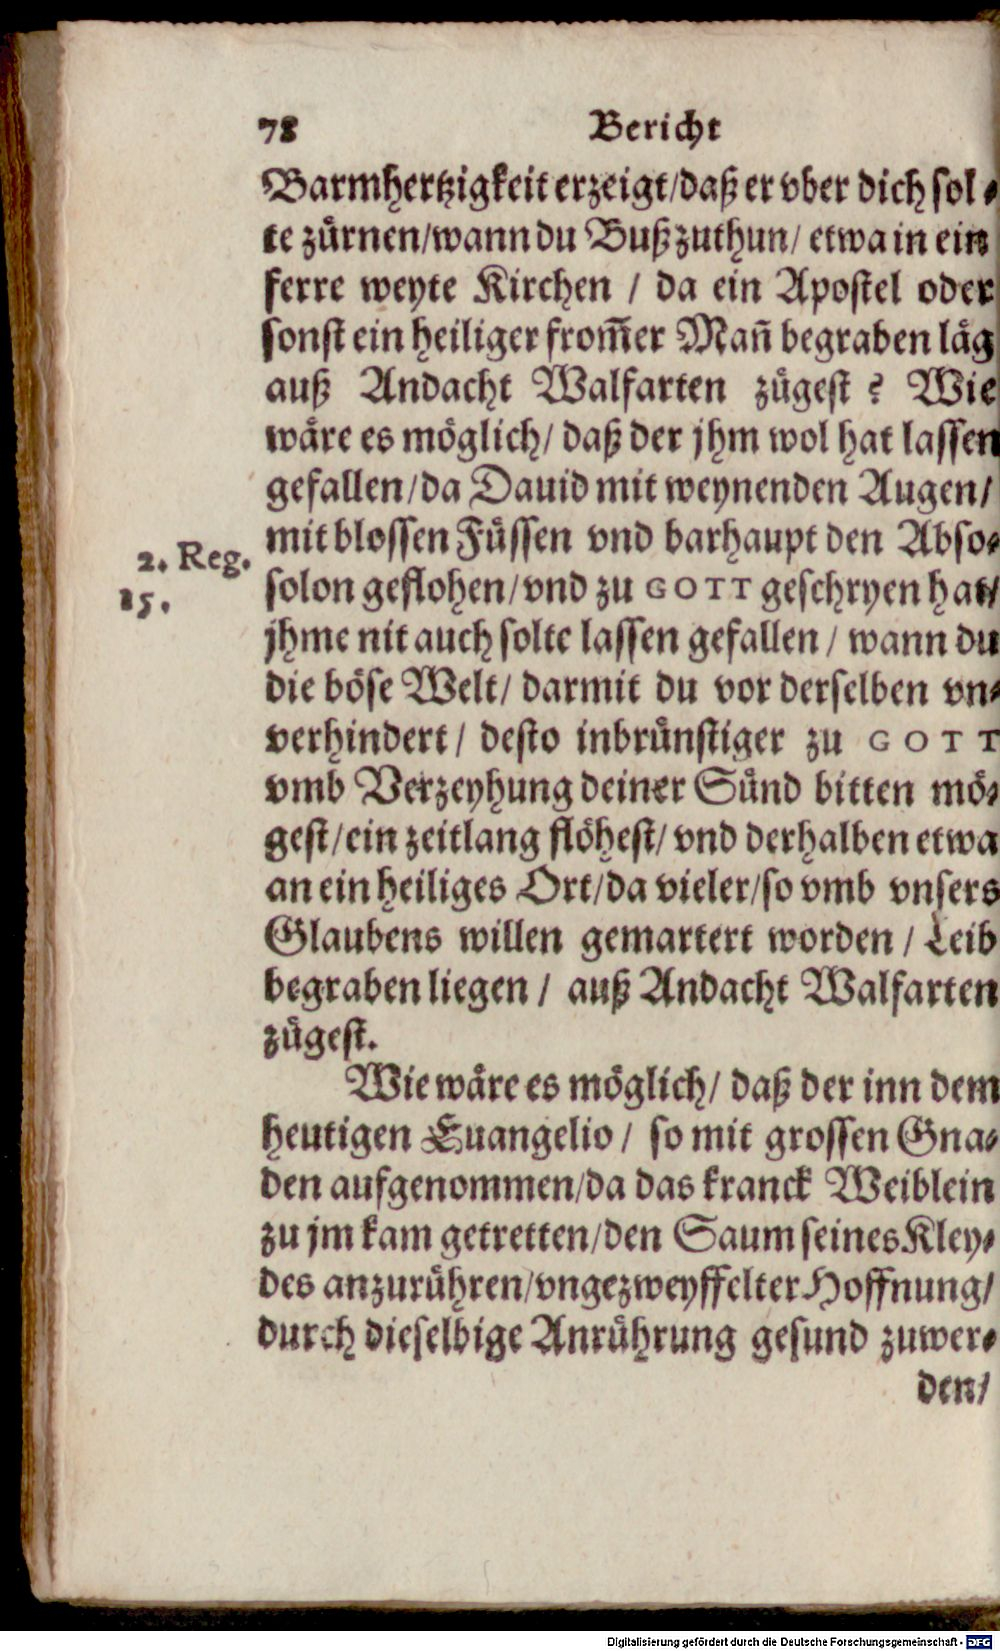 78 Bericht
Barmhertzigkeit erzeigt/daß er vber dich sol⸗
te zürnen/wann du Buß zuthun/ etwa in ein
ferre weyte Kirchen / da ein Apostel oder
sonst ein heiliger from̄er Man̄ begraben läg
auß Andacht Walfarten zügest? Wie
wäre es möglich/ daß der jhm wol hat lassen
gefallen/da Dauid mit weynenden Augen/
mit blossen Füssen vnd barhaupt den Abso⸗
2. Reg.
15.
solon geflohen/vnd zu GOTT geschryen hat/
jhme nit auch solte lassen gefallen / wann du
die böse Welt/ darmit du vor derselben vn⸗
verhindert/ desto inbrünstiger zu GOTT
vmb Verzeyhung deiner Sünd bitten mö⸗
gest/ein zeitlang flöhest/ vnd derhalben etwa
an ein heiliges Ort/da vieler/so vmb vnsers
Glaubens willen gemartert worden / Leib
begraben liegen / auß Andacht Walfarten
zügest.
Wie wäre es möglich/ daß der inn dem
heutigen Euangelio / so mit grossen Gna⸗
den aufgenommen/da das kranck Weiblein
zu jm kam getretten/den Saum seines Kley⸗
des anzurühren/vngezweyffelter Hoffnung/
durch dieselbige Anrührung gesund zuwer⸗
den/
Digitalisierung gefördert durch die Deutsche Forschungsgemeinschaft - DFG